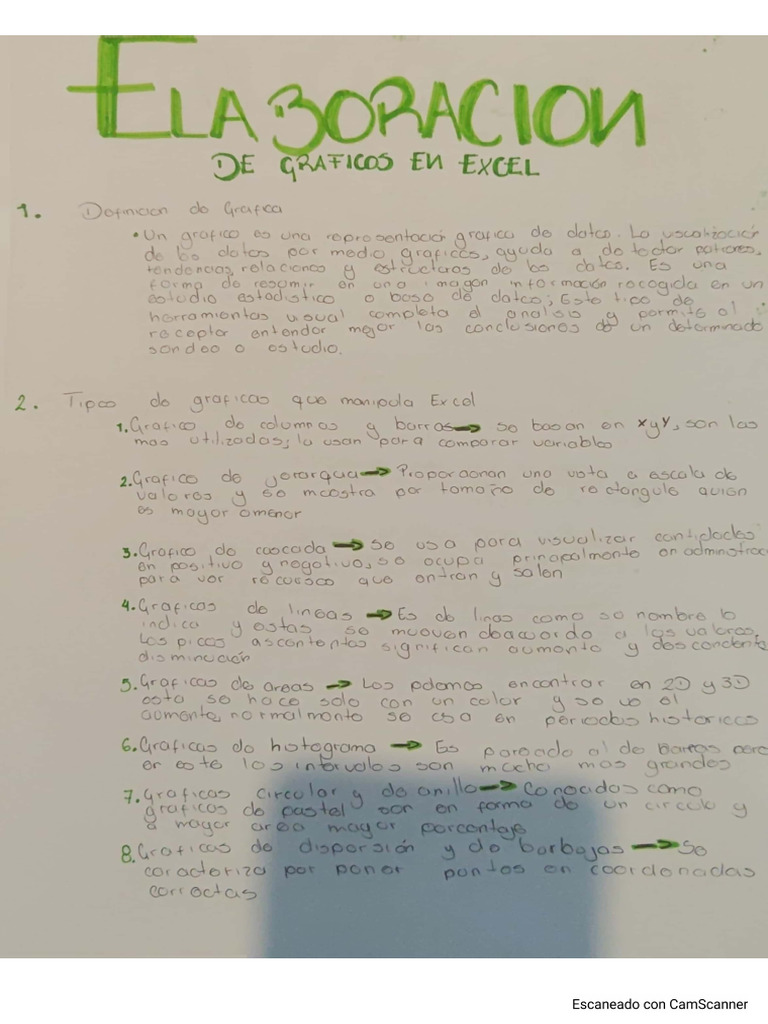 ELABORACION
DE GRAFICOS EN EXCEL
1. Definicion de Grafica
• Un grafico es una representació grafica de datos. La visualización
de los datos por medio graficos, ayuda a de tectar patrones,
tendencias, relaciones y estructuras de los datos. Es una
forma de resumir en una imagen información recogida en un
estudio estadistico o base de datos; Este tipo de
herramientas visual completa el analisis y permite al
receptor entender mejor las conclusiones de un determinado
sondeo o estudio.
2. Tipos de graficas que manipula Excel
1. Grafico de columnas y barras → se basan en X y Y, son las
mas utilizadas; la usan para comparar variables
2. Grafico de jerarquia → Proporcionan una vista a escala de
valores y se mcostra por tamaño de rectangulo quien
es mayor amenor
3. Grafico de cascada → Se usa para visualizar cantidades
en positivo y negativo, se ocupa principalmente en administrac
para ver recuesco que entran y salen
4. Graficas de lineas → Es de linas como so nombre lo
indica y estas se mueven deacuerdo a los valores,
Los picos ascententas significan aumento y descendente
disminución
5. Graficas de areas → Los pdemos encontrar en 2D y 3D
esta se hace solo con un color y se ve el
aumento, normalmente se usa en periodos historicos
6. Graficas de histograma → Es pareado al de Barras pero
en este los intervalos son mucho mas grandes
7. Graficas circular y de anillo → Conocidos como
graficos de pastel son en forma de un circulo y
a mayor area mayor porcentaje
8. Graficas de dispersión y de borbajas → Se
caracteriza por poner puntos en coordenadas
correctas
Escaneado con CamScanner